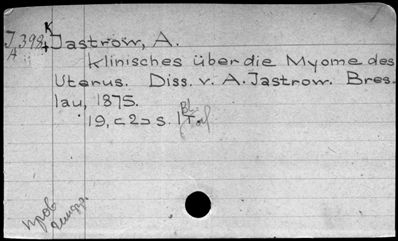 K
J 398 Jastrow, A.
A
Klinisches über die Myome des
Uterus. Diss. v. A. Jastrow. Bres-
lau, 1875.
19, c 2 ɔ s. 1 Bl.
пров